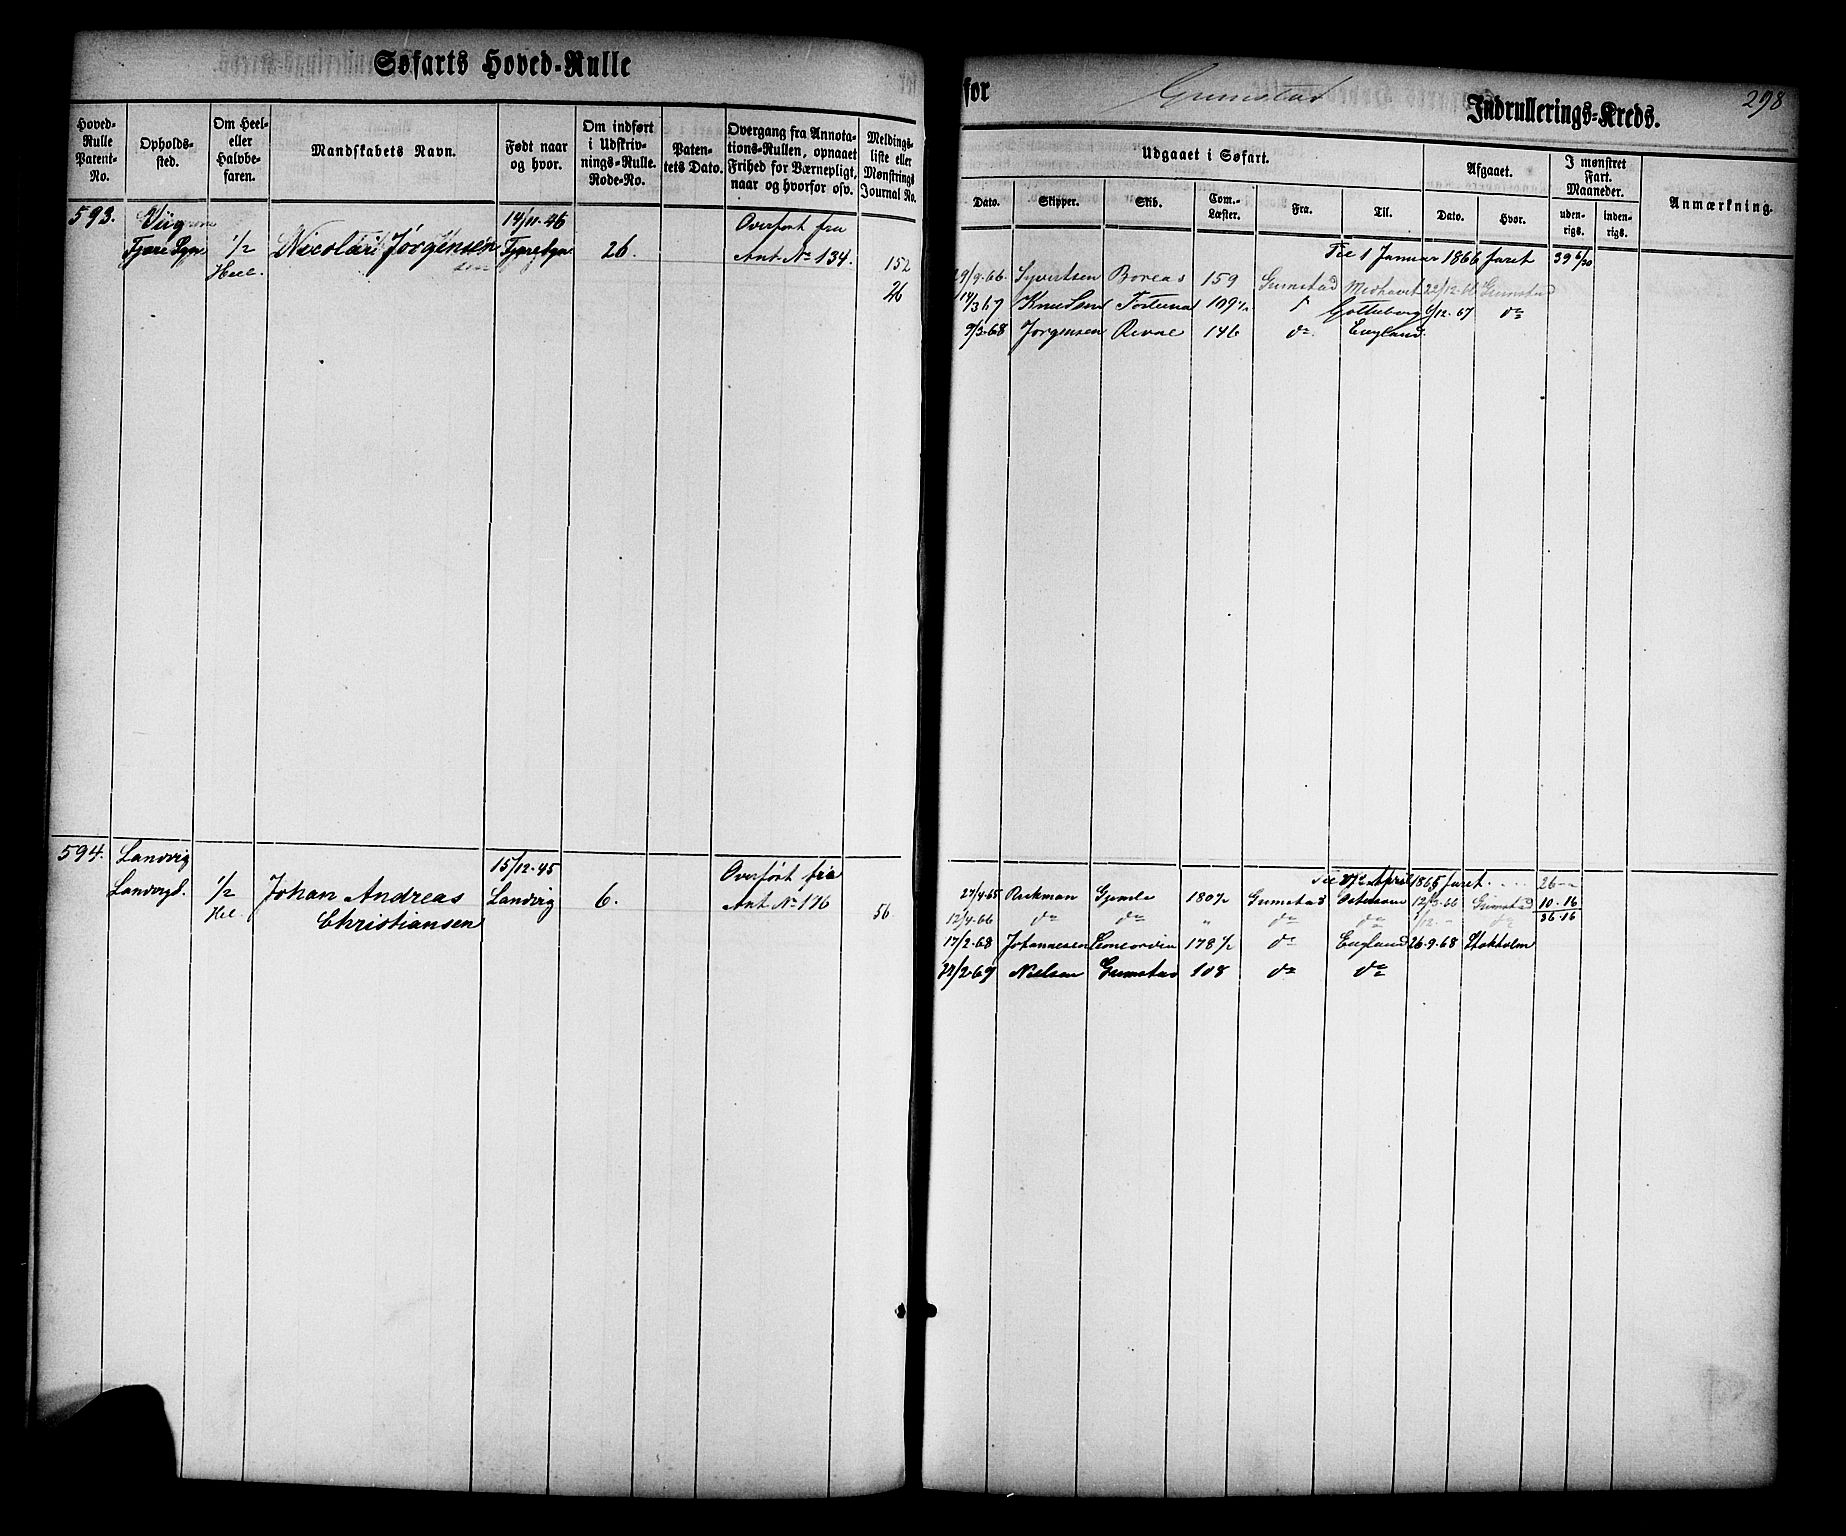 Søfarts Hoved-Rulle
for Grimstad Indrullerings-Kreds.
298
Hoved-Rulle Patent-No.
Opholds-sted.
Om Heel- eller Halvbe-faren.
Mandskabets Navn.
Født naar og hvor.
Om indført i Udskriv-nings-Rulle. Rode-No.
Paten-tets Dato.
Overgang fra Annota-tions-Rullen, opnaaet Frihed for Værnepligt, naar og hvorfor osv.
Meldings-liste eller Mønstrings Journal No.
Udgaaet i Søfart.
Afgaaet.
I mønstret Fart. Maaneder.
Anmærkning.
Dato. Skipper. Skib. Com.-Læster. Fra. Til. Dato. Hvor. uden-rigs. inden-rigs.
593. Viig 14/11-46 Overført fra
1/2 Nicolai Jørgensen 26. Ant. No 134. 152
Heel. 26
Til 1 Januar 1866 faret 39 6/30
29/9-66 Syvertsen Boreas 159 Grimstad Midhavet 22/12-66 Grimstad
14/3 67 Knudsen Fortuna Gotteborg 6/12-67 do
9/3-68 Jørgensen 146 do England
594. Landvig 15/12-45 Overført fra
1/2 Johan Andreas Landvig 6. Ant No 116 56
Hel. Christiansen
Til 27de April 1865 faret 26 -
27/4-65 Gjemle Grimstad 12/3-66 Grimstad 10-16
12/4-66 do do " do do 36-16
17/2-68 Johannesen Concordia 178 1/2 do England 26-9-68 Stokholm
Nielsen Grimstad 108 do do